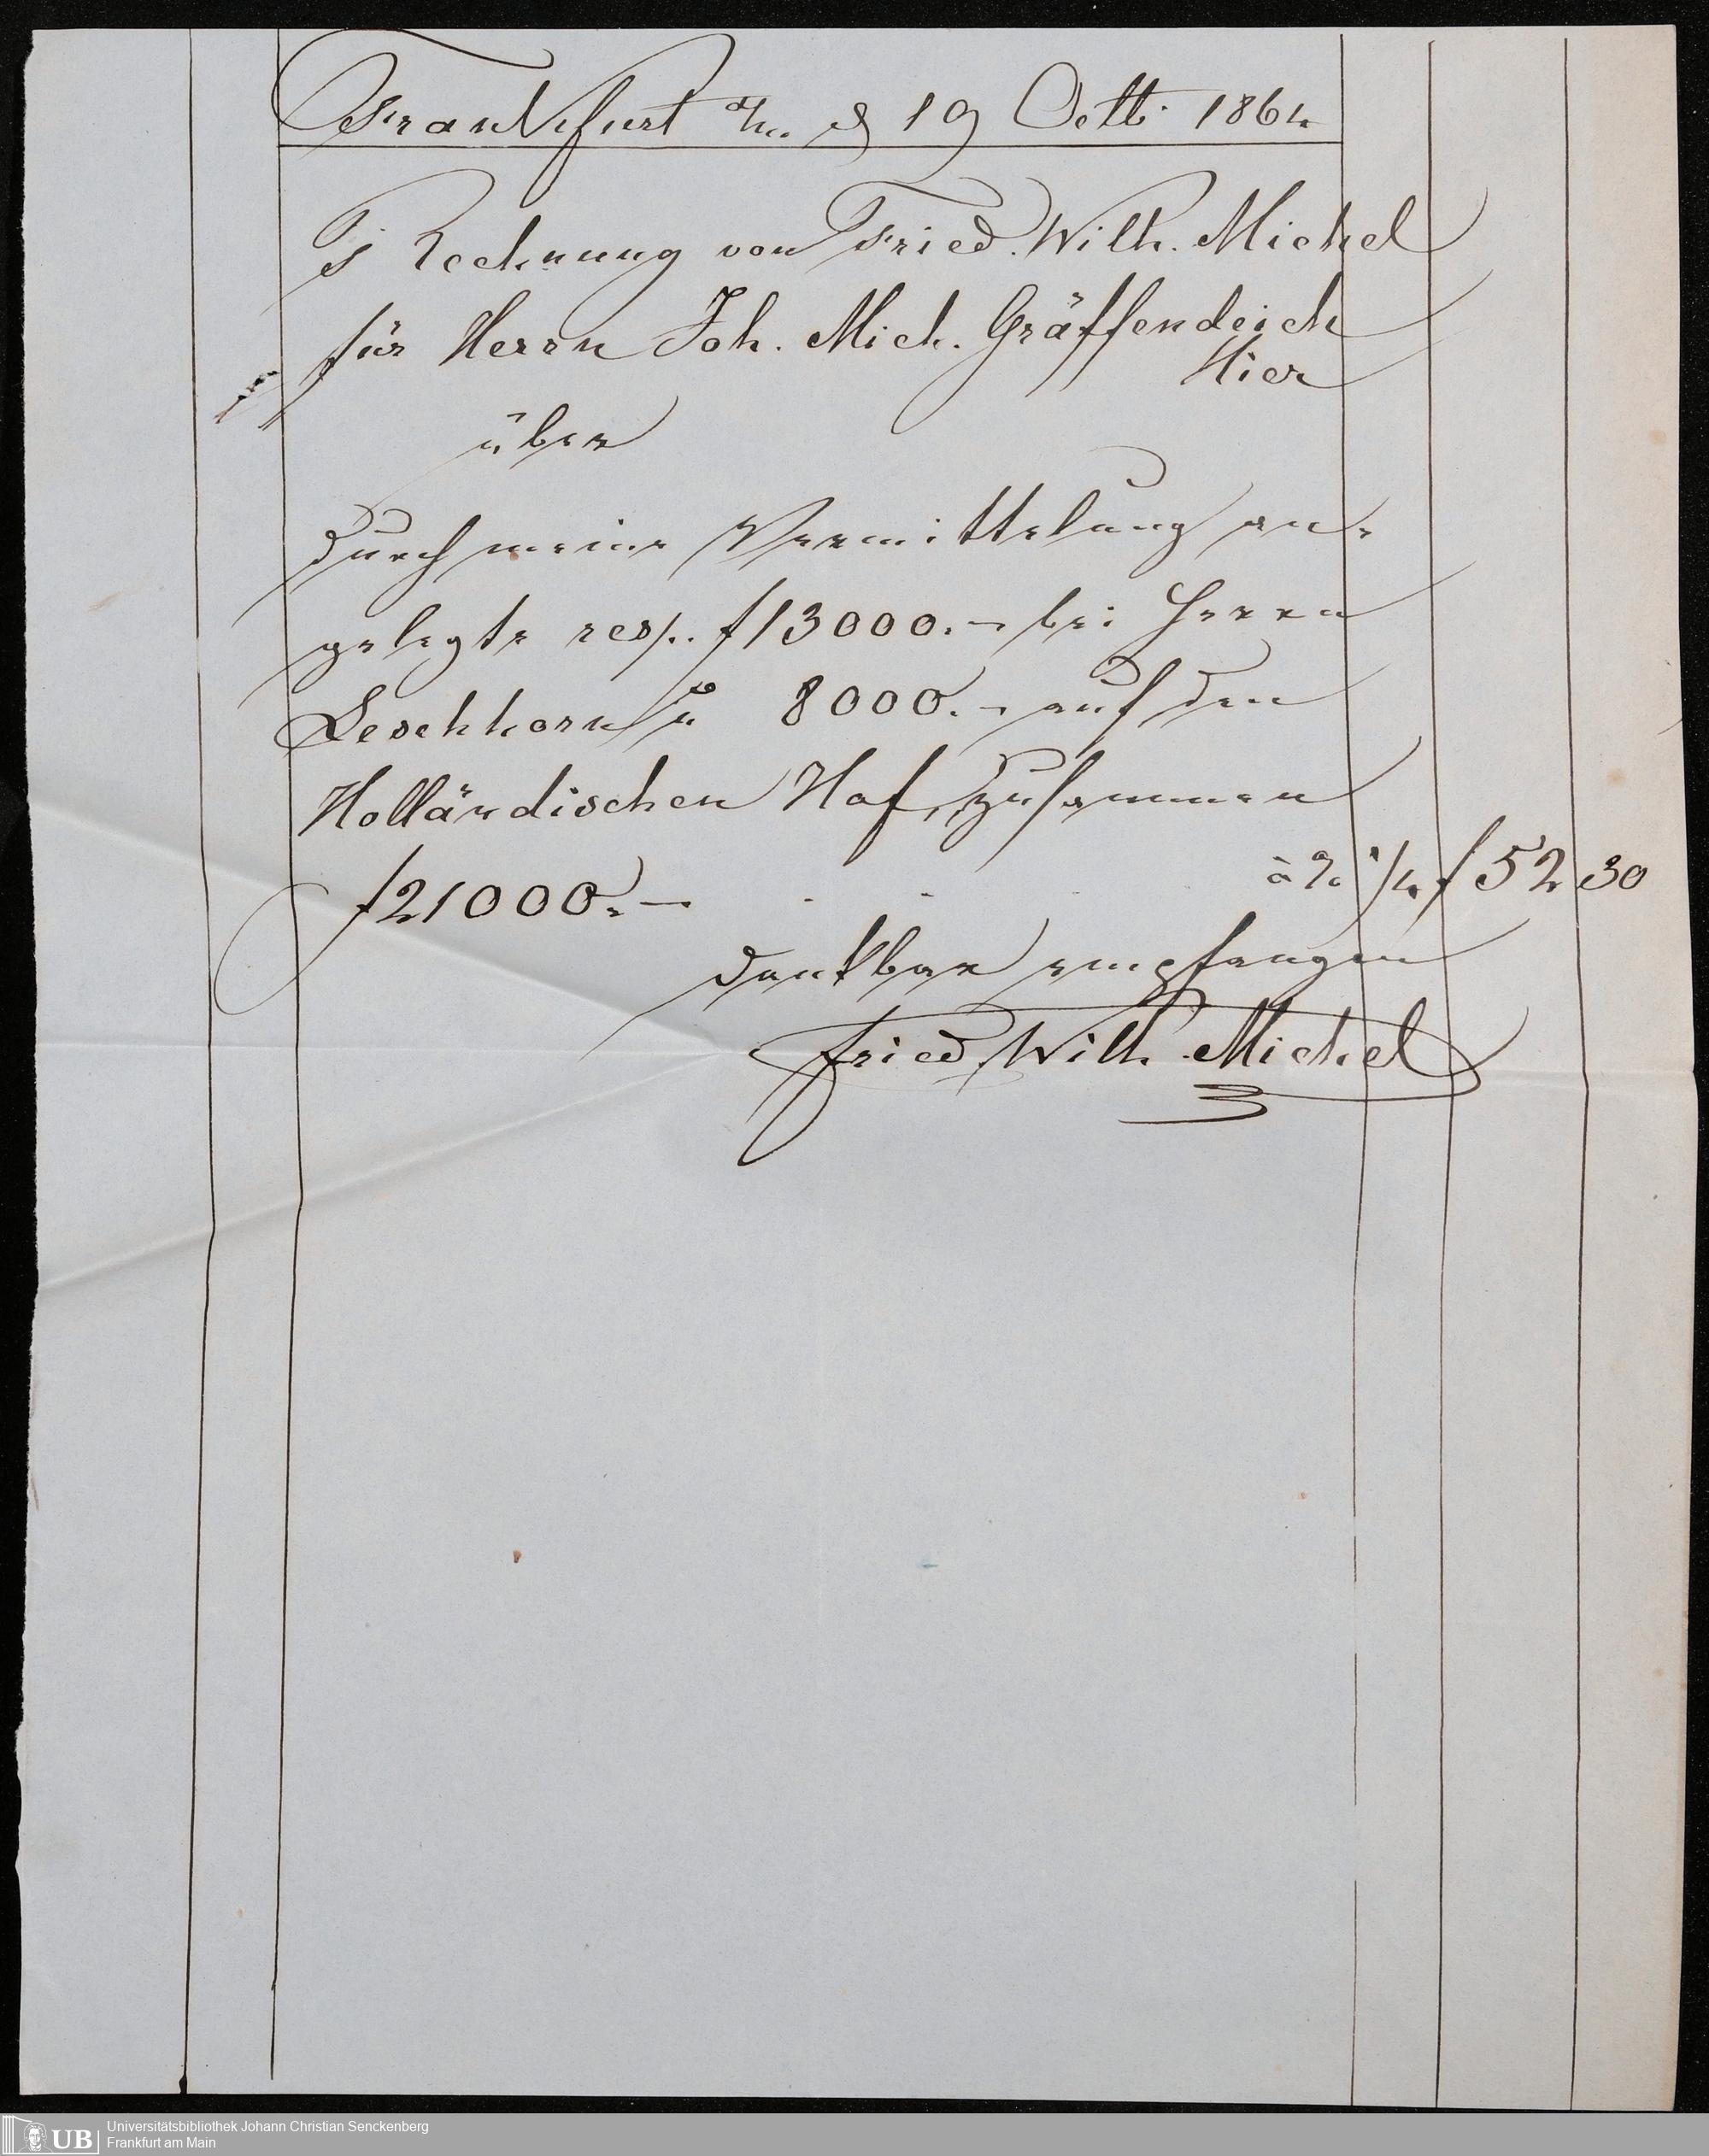 Frankfurt a/m. d 19 Octb. 1864
Rechnung von Fried. Wilh. Michel
für Herrn Joh. Mich. Gräffendeich
Hier
über
durch meine Vermittelung an-
gelegte resp. f 13000.- bei Herrn
Leschhorn u 8000.- auf den
Holländischen Hof, zusammen
f 21000.- . - à % 1/4 f 52 30
dankbar empfangen
Fried. Wilh. Michel
UB Universitätsbibliothek Johann Christian Senckenberg
Frankfurt am Main